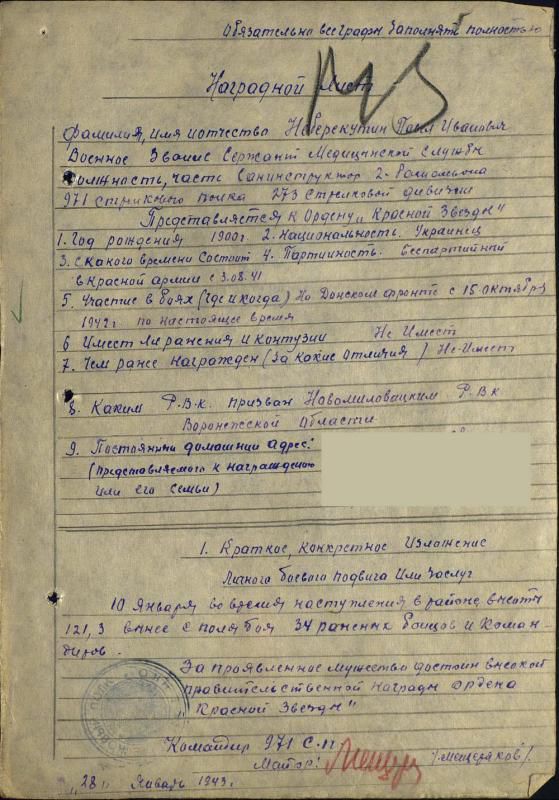 Обязательно все графы заполнять полностью
Наградной Лист
Фамилия, имя и отчество Неперекутин Павел Иванович
Военное Звание Сержант Медицинской Службы
Должность, часть Санинструктор 2-
971 стрелкового полка 273 Стрелковой дивизии
Представляется к Ордену „Красной Звезды"
1. Год рождения 1900г. 2. Национальность. Украинец
3. С какого времени Состоит 4. Партийность. Беспартийный
в Красной армии с 3.08.41
5. Участие в боях (где и когда) На Донском фронте с 15. Октября
1942г. по настоящее время
6 Имеет ли ранения и контузии Не Имеет
7. Чем ранее награжден (за какие отличия) Не-Имеет
8. Каким Р.В.К. призван Новомиловацким Р.В.К.
Воронежской Области
9. Постоянный домашний адрес:
(представляемого к награждению
или его семьи)
1. Краткое, конкретное Изложение
Личного боевого подвига Или заслуг
10 Января во время наступления в районе высоты
121,3 вынес с поля боя 34 раненых бойцов и Коман-
диров.
За проявленное мужество достоин высокой
правительственной Награды Ордена
„Красной Звезды"
Командир 971 С.П.
Майор: /Мещеряков/.
„28" Январь 1943г.